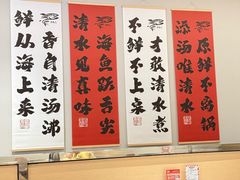 原鲜不锅
添沥唯清水
才敢清水煮
不鲜不上桌
海鱼跃舌尖
清水见真味
香自清沥沸
鲜从海上来